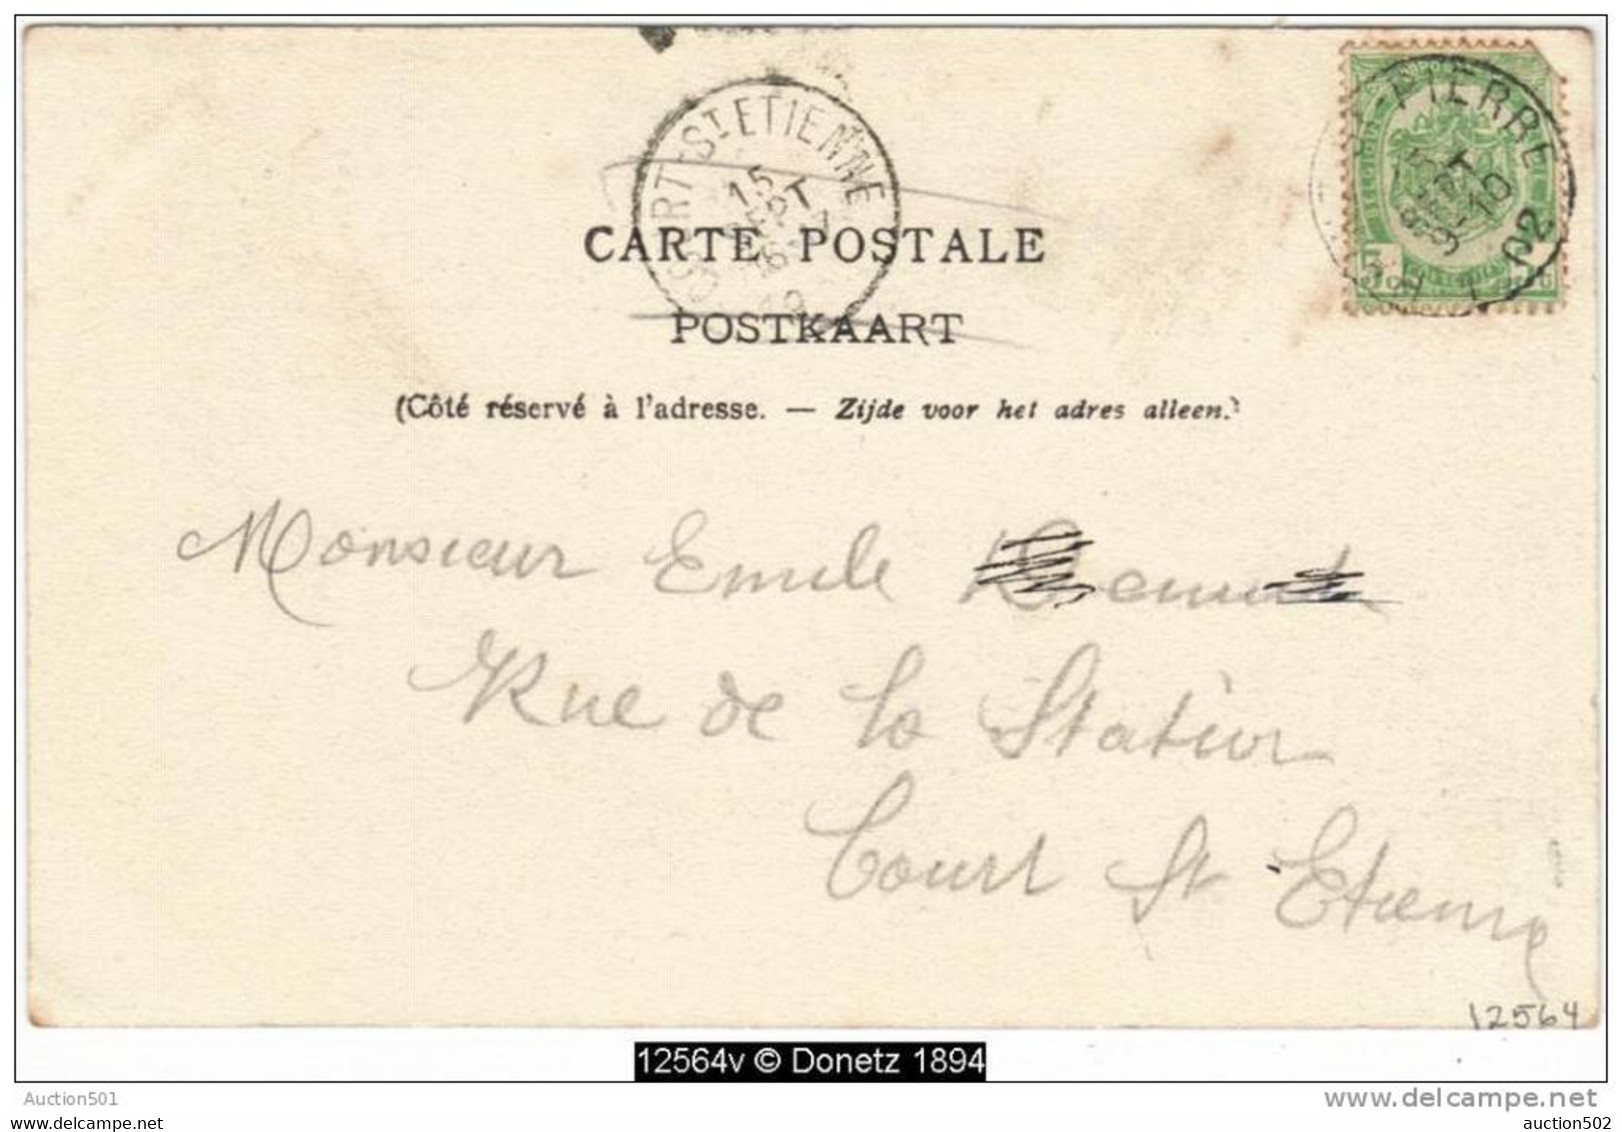 CARTE POSTALE
POSTKAART
(Côté réservé à l'adresse. — Zijde voor het adres alleen.)
COURT-ST ETIENNE
15
SEPT
PIERRE
SEPT
9-10
02
5
Monsieur Emile
Rue de la Station
Court St Etienne
12564
12564v © Donetz 1894
Auction501
www.delcampe.net
auction502